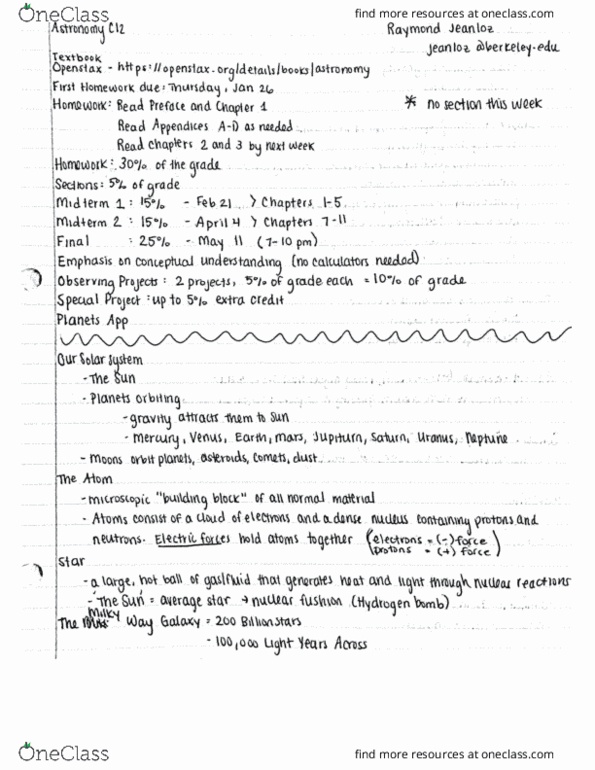 OneClass
find more resources at oneclass.com
Astronomy C12
Raymond Jeanloz
jeanloz @berkeley.edu
Textbook
Openstax - https://openstax.org/details/books/astronomy
First Homework due: Thursday, Jan 26
Homework: Read Preface and Chapter 1
* no section this week
Read Appendices A-D as needed
Read chapters 2 and 3 by next week
Homework: 30% of the grade
Sections: 5% of grade
Midterm 1 : 15% - Feb 21 > Chapters 1-5
Midterm 2 : 15% - April 4 > Chapters 7-11
Final : 25% - May 11 (7-10 pm)
Emphasis on conceptual understanding (no calculators needed)
Observing Projects: 2 projects, 5% of grade each = 10% of grade
Special Project: up to 5% extra credit
Planets App
Our Solar System
- The Sun
- Planets orbiting
- gravity attracts them to sun
- mercury, Venus, Earth, mars, Jupiturn, Saturn, Uranus, Neptune
- Moons orbit planets, asteroids, comets, dust
The Atom
- microscopic "building block" of all normal material
- Atoms consist of a cloud of electrons and a dense nucleus containing protons and
neutrons. Electric forces hold atoms together (electrons = (-) force
protons = (+) force)
Star
- a large, hot ball of gas/fluid that generates heat and light through nuclear reactions
- 'The Sun' = average star → nuclear fushion (Hydrogen bomb)
The Milky Way Galaxy = 200 Billion stars
- 100,000 Light Years Across
OneClass
find more resources at oneclass.com